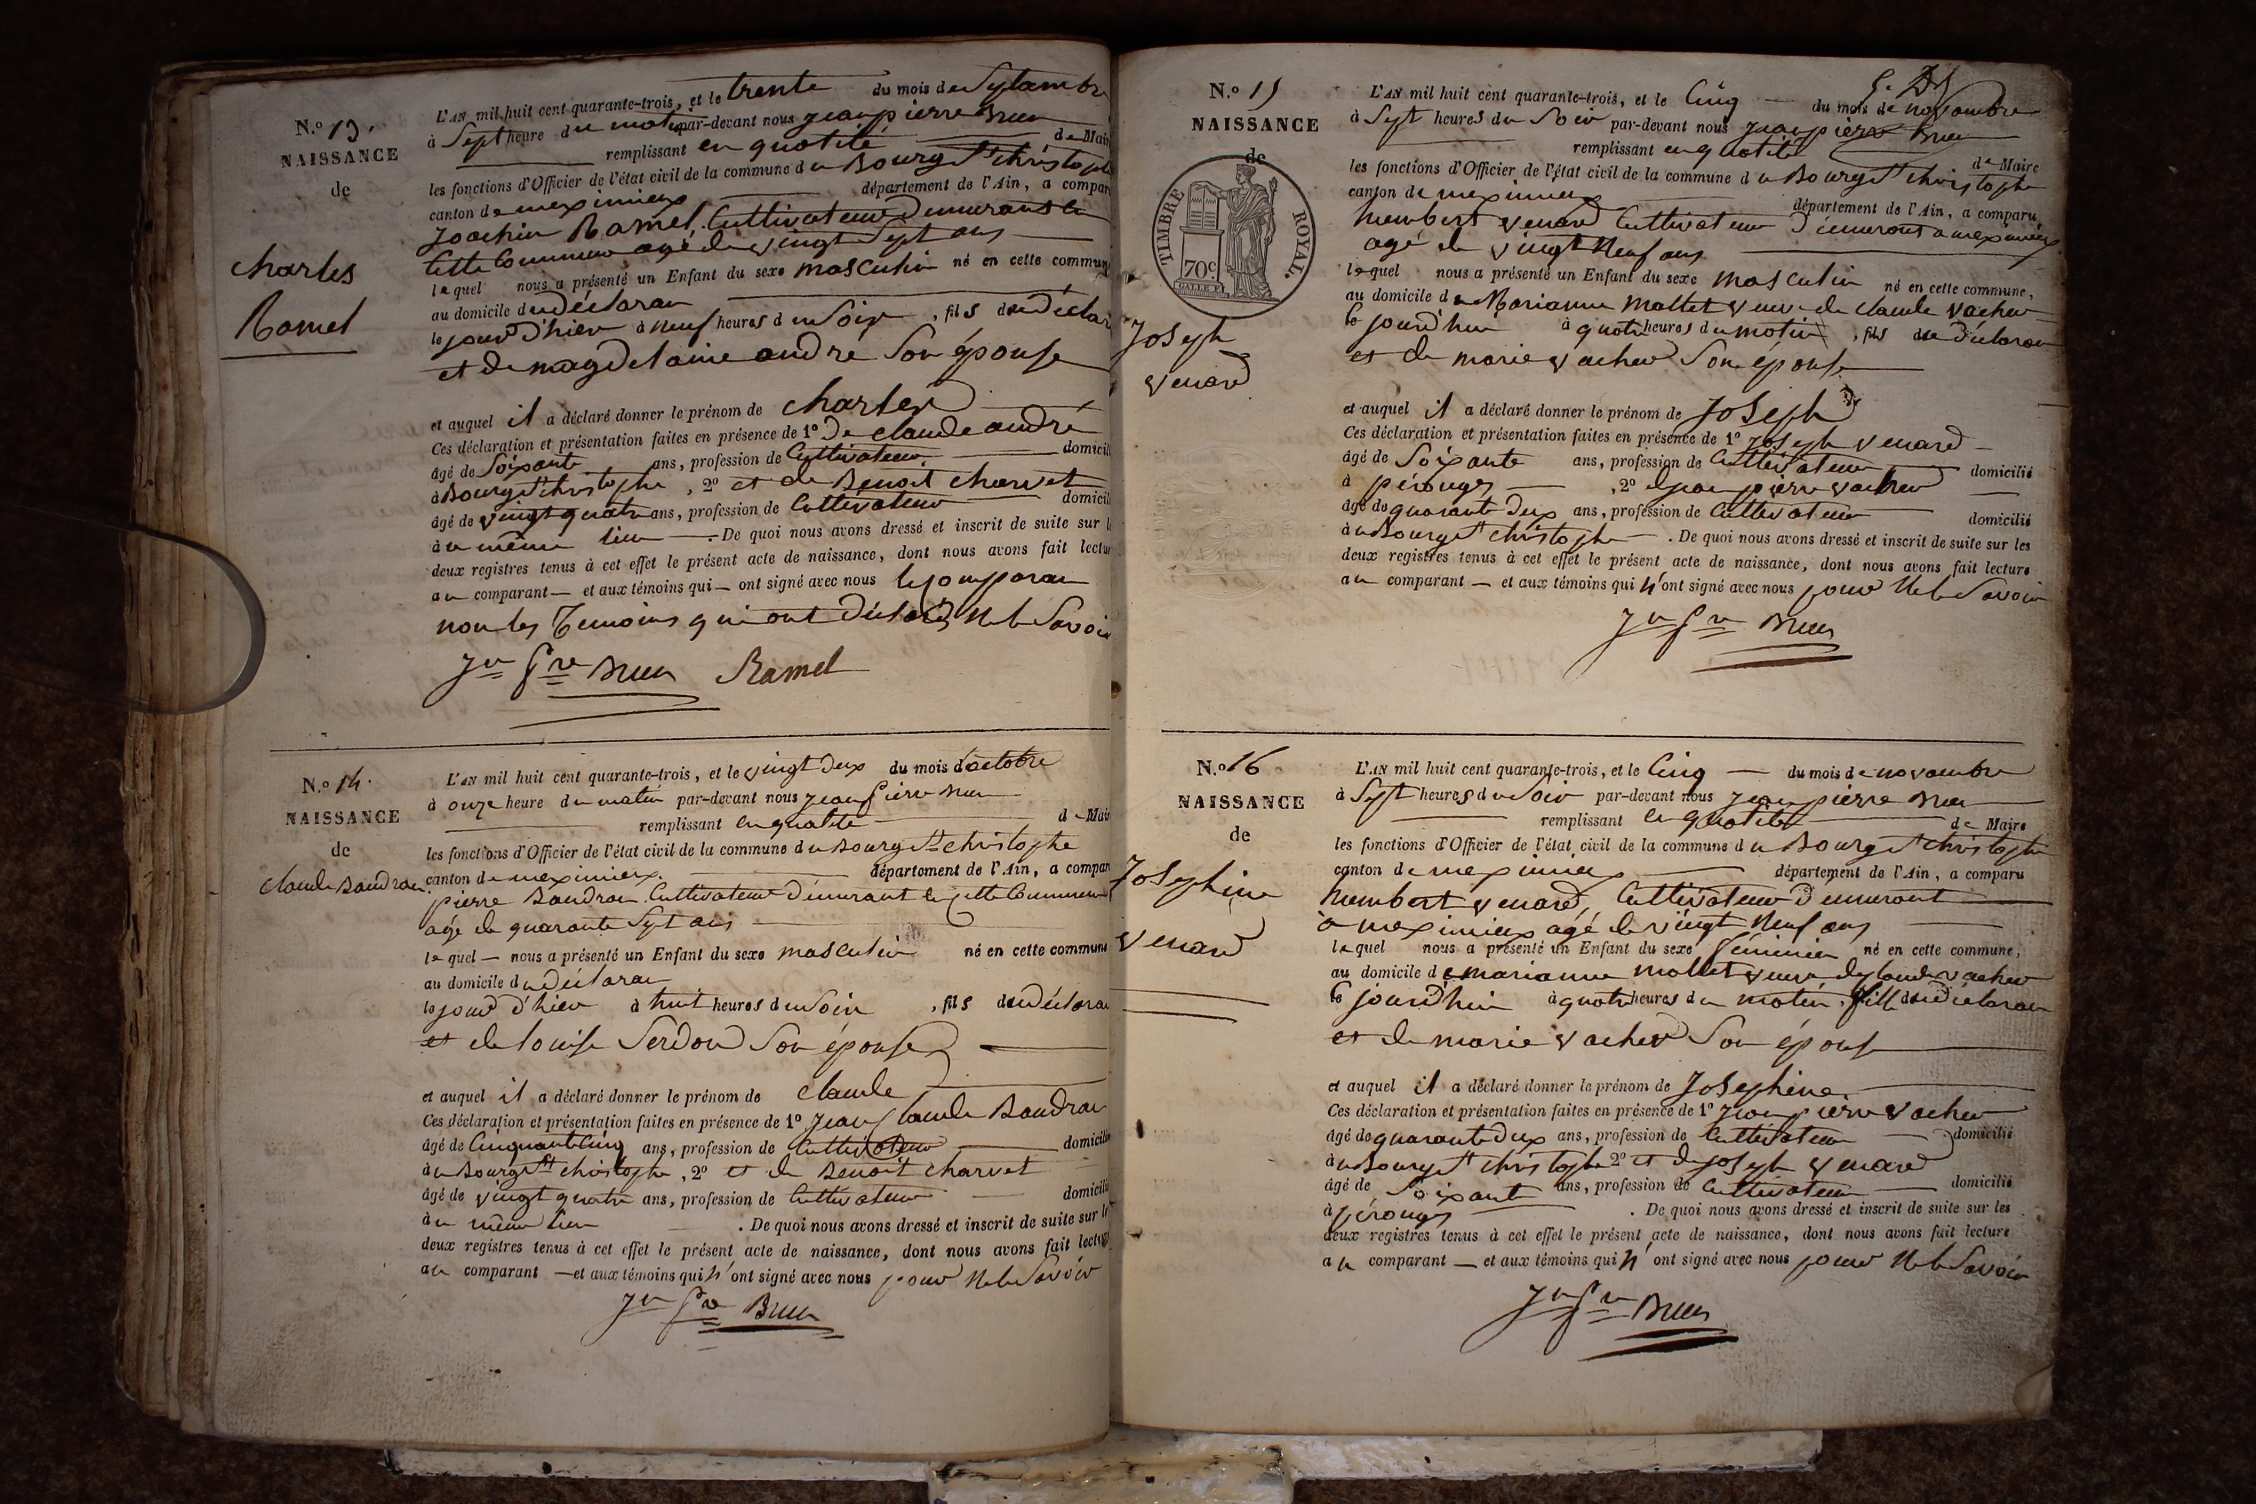 N.º 13.
NAISSANCE
de
Charles
Ramel
L'AN mil huit cent quarante-trois, et le trente du mois de Septambre
à Sept heure du matin par-devant nous jean pierre Brun
remplissant en qualité de Mai
les fonctions d'Officier de l'état civil de la commune du Bourg St christophe
canton de meximieux département de l'Ain, a compar
joachim Ramel Cultivateur Demurant en
Cette Commune agé de vingt Sept ans
lequel nous a présenté un Enfant du sexe masculin né en cette commune
au domicile du déclaran
le jour d'hier à neuf heures du Soir, fils du déclar
et de magdelaine andré Son épouse
et auquel il a déclaré donner le prénom de charles
Ces déclaration et présentation faites en présence de 1º De claude andré
âgé de Soixante ans, profession de Cultivateur domicili
à Bourg St christophe, 2º et de Benoit charvet
âgé de vingt quatre ans, profession de Cultivateur domicil
à u même lieu. De quoi nous avons dressé et inscrit de suite sur l
deux registres tenus à cet effet le présent acte de naissance, dont nous avons fait lectur
au comparant et aux témoins qui ont signé avec nous le comparan
non les Temoins qui ont déclaré Ne le Savoir
Jn Pre Brun Ramel
N.º 14.
NAISSANCE
de
Claude Baudran
L'AN mil huit cent quarante-trois, et le vingt deux du mois d'octobre
à onze heure du matin par-devant nous jean pierre Brun
remplissant en qualité de Mair
les fonctions d'Officier de l'état civil de la commune du Bourg St christophe
canton de meximieux. département de l'Ain, a compar
pierre Baudran Cultivateur Demurant en Cette Commune
âgé de quarante Sept ans
lequel nous a présenté un Enfant du sexe masculin né en cette commune
au domicile du déclaran
le jour d'hier à huit heures du Soir, fils du déclaran
et de louise Serdon Son épouse
et auquel il a déclaré donner le prénom de claude
Ces déclaration et présentation faites en présence de 1º jean claude Baudran
âgé de Cinquante Cinq ans, profession de Cultivateur domicilié
à u Bourg St christophe, 2º et de Benoit charvet
âgé de vingt quatre ans, profession de Cultivateur domicilié
à u même lieu. De quoi nous avons dressé et inscrit de suite sur le
deux registres tenus à cet effet le présent acte de naissance, dont nous avons fait lectur
au comparant et aux témoins qui n'ont signé avec nous pour Ne le Savoir
Jn Pre Brun
N.º 15
NAISSANCE
de
TIMBRE ROYAL.
70 c.
Joseph
venard
L'AN mil huit cent quarante-trois, et le Cinq du mois de novambre
à Sept heures du Soir par-devant nous jean pierre Brun
remplissant en qualité de Maire
les fonctions d'Officier de l'état civil de la commune du Bourg St christophe
canton de meximieux département de l'Ain, a comparu
humbert venard Cultivateur Démurant a meximieux
agé de vingt Neuf ans
lequel nous a présenté un Enfant du sexe masculin né en cette commune,
au domicile de Marianne mollet veuve de claude vacher
le jourd'hui à quatre heures du matin, fils du déclaran
et de marie vacher Son épouse
et auquel il a déclaré donner le prénom de Joseph
Ces déclaration et présentation faites en présence de 1º joseph venard
âgé de Soixante ans, profession de Cultivateur domicilié
à pérouges, 2º de jean pierre vacher
âgé de quarante deux ans, profession de Cultivateur domicilié
à u Bourg St christophe. De quoi nous avons dressé et inscrit de suite sur les
deux registres tenus à cet effet le présent acte de naissance, dont nous avons fait lecture
au comparant et aux témoins qui n'ont signé avec nous pour Ne le Savoir
Jn Pre Brun
N.º 16
NAISSANCE
de
Josephine
venard
L'AN mil huit cent quarante-trois, et le Cinq du mois de novambre
à Sept heures du Soir par-devant nous jean pierre Brun
remplissant en qualité de Maire
les fonctions d'Officier de l'état civil de la commune du Bourg St christophe
canton de meximieux département de l'Ain, a comparu
humbert venard, Cultivateur Demurant
à meximieux agé de vingt Neuf ans
lequel nous a présenté un Enfant du sexe féminin né en cette commune,
au domicile de marianne mollet veuve de claude vacher
le jourd'hui à quatre heures du matin, fille du déclaran
et de marie vacher Son épouse
et auquel il a déclaré donner le prénom de Josephine
Ces déclaration et présentation faites en présence de 1º jean pierre vacher
âgé de quarante deux ans, profession de Cultivateur domicilié
à u Bourg St christophe 2º et de joseph venard
âgé de Soixante ans, profession de Cultivateur domicilié
à pérouges. De quoi nous avons dressé et inscrit de suite sur les
deux registres tenus à cet effet le présent acte de naissance, dont nous avons fait lecture
au comparant et aux témoins qui n'ont signé avec nous pour Ne le Savoir
Jn Pre Brun